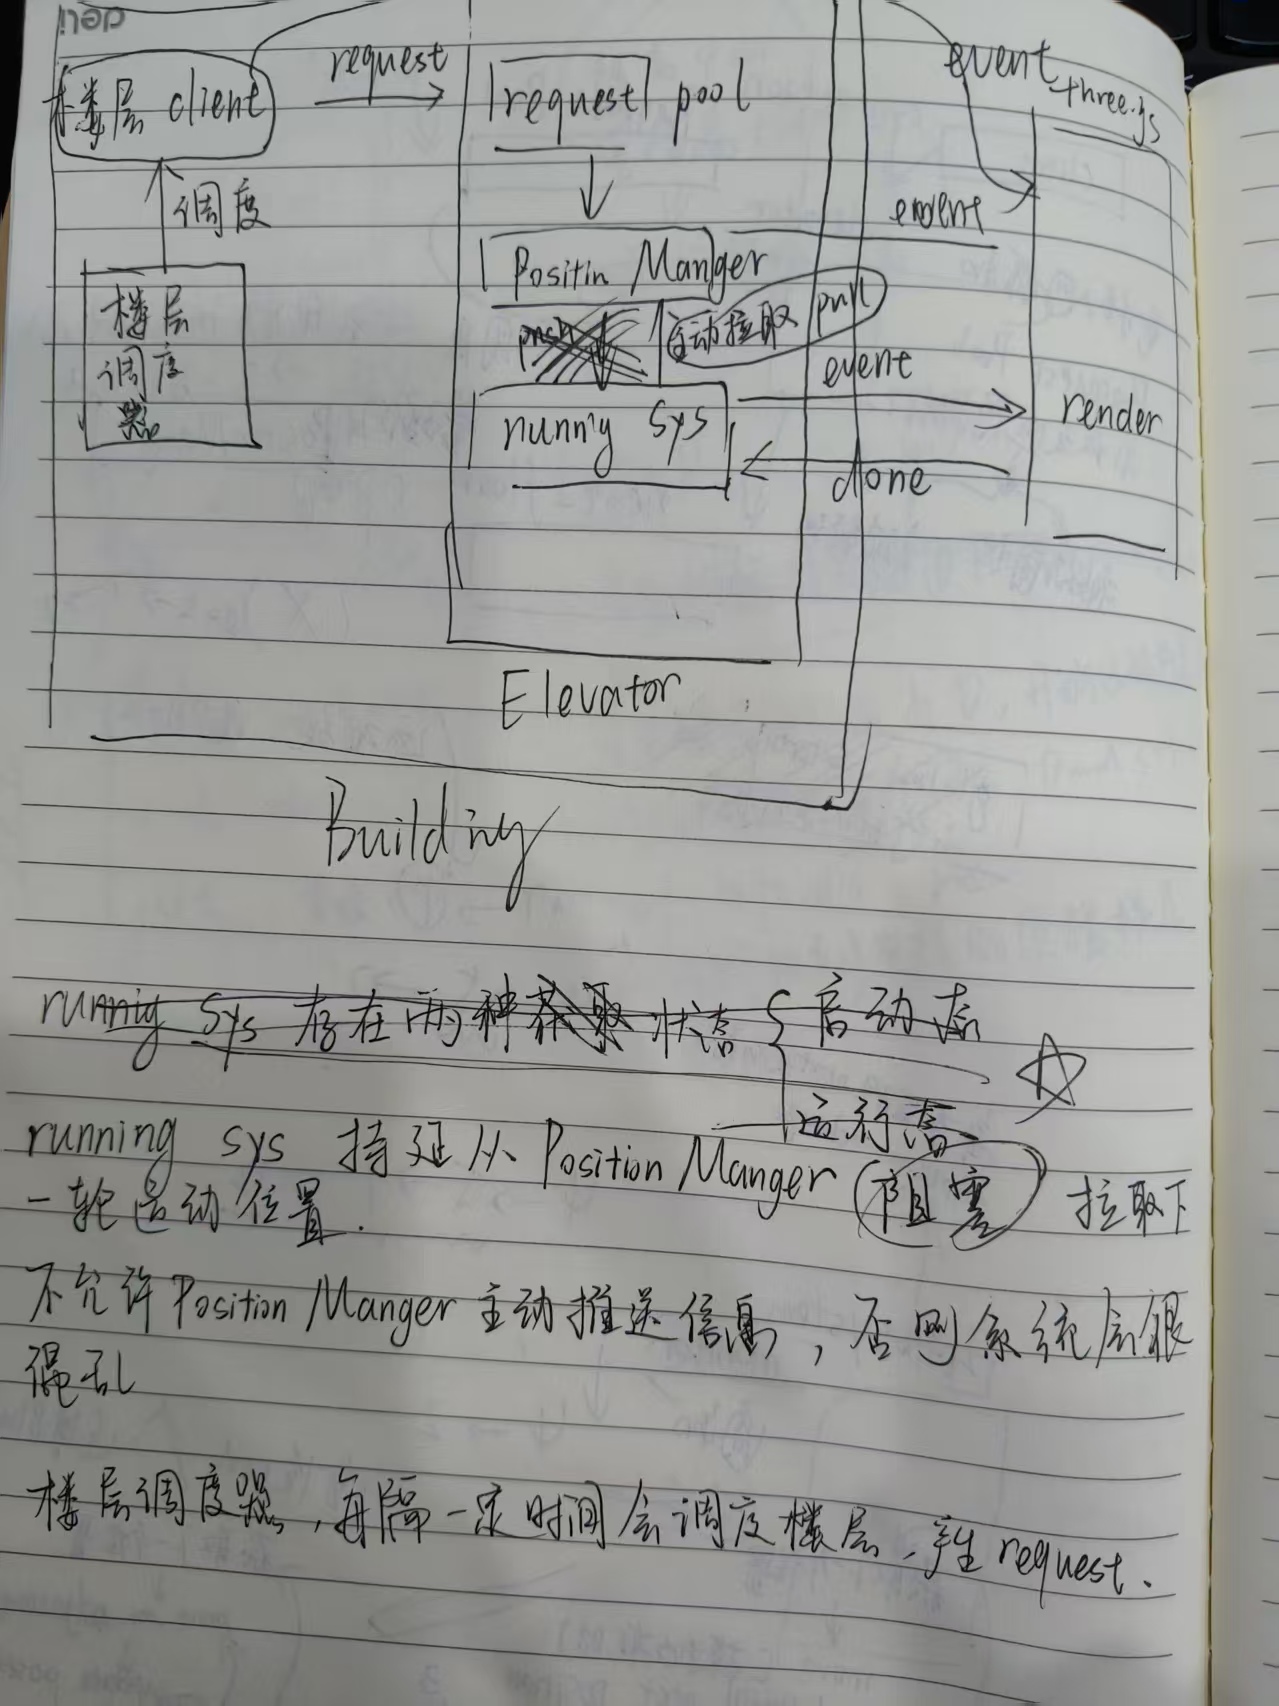 deli
楼层 client
request
request pool
event
three.js
调度
event
Positin Manger
楼层
调度
器
push
主动拉取 pull
event
runnig Sys
render
done
Elevator
Building
runnig Sys 存在两种 状态 启动态
运行态
running sys 持续从 Position Manger 阻塞 拉取下
一轮运动位置.
不允许 Position Manger 主动推送信息, 否则系统会很
混乱
楼层调度器, 每隔一定时间会调度楼层, 产生 request.